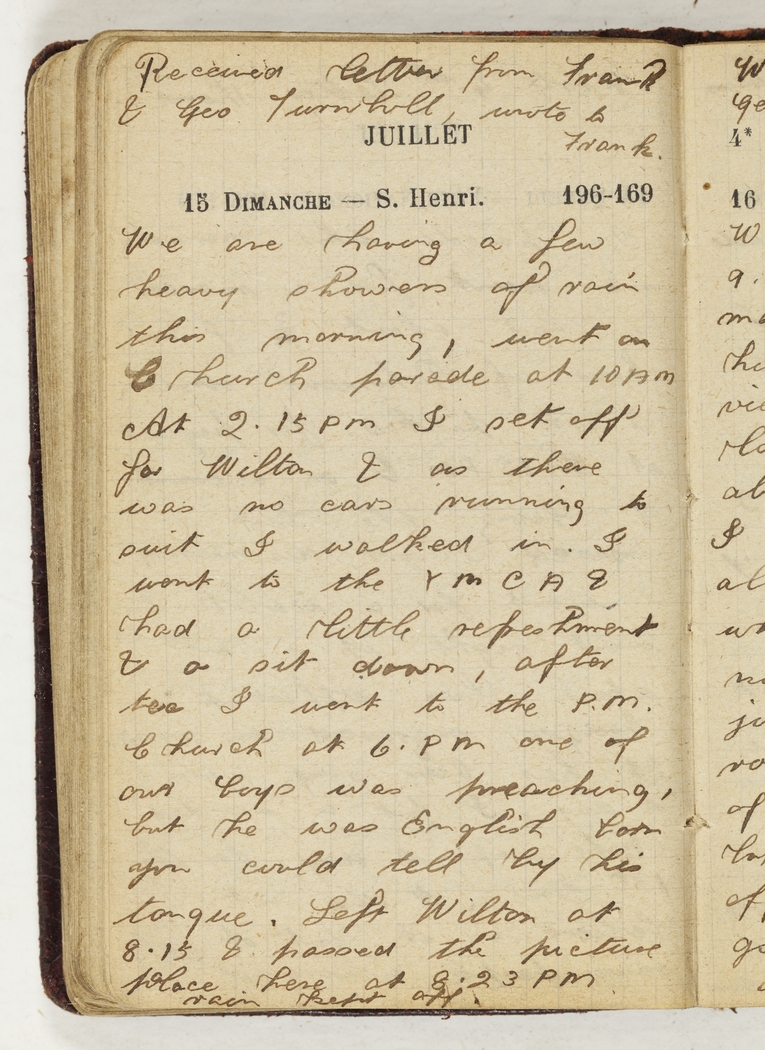 Received letter from Frank
& Geo Turnbull, wrote to
Frank.
JUILLET
15 DIMANCHE — S. Henri. 196-169
We are having a few
heavy showers of rain
this morning, went on
Church parade at 10 AM
At 2.15 PM I set off
for Wilton & as there
was no cars running to
suit I walked in. I
went to the YMCA &
had a little refreshment
& a sit down, after
tea I went to the P.M.
Church at 6. PM one of
our boys was preaching,
but he was English born
you could tell by his
tongue. Left Wilton at
8.15 & passed the picture
place here at 8.23 PM
rain kept off.
4*
16
W
9.
I
of